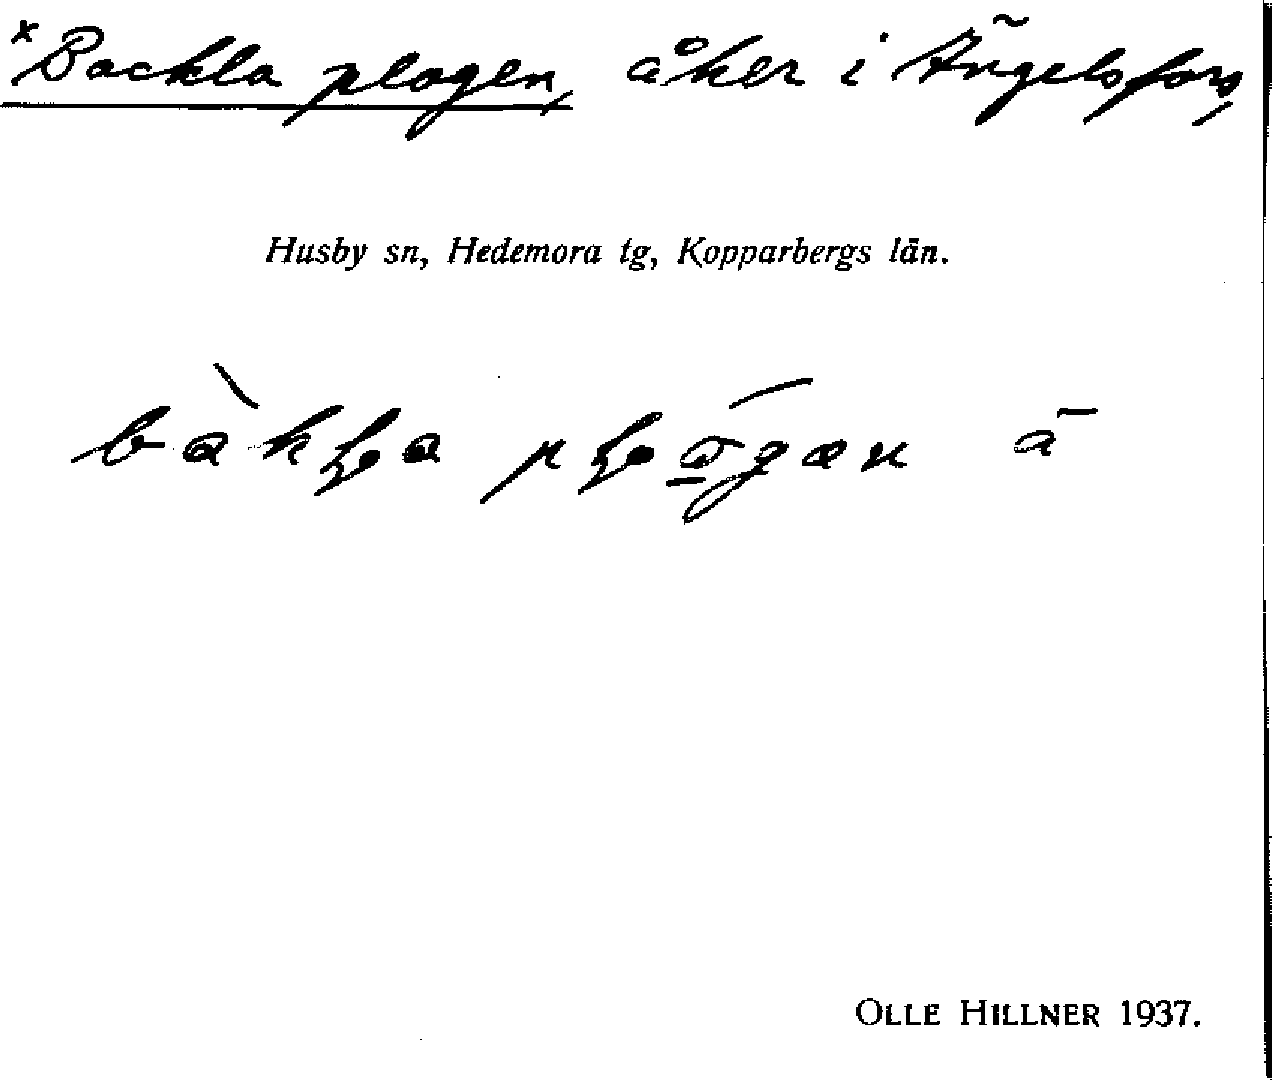 *Backla plogen, åker i Ängelsfors,
Husby sn, Hedemora tg, Kopparbergs län.
OLLE HILLNER 1937.